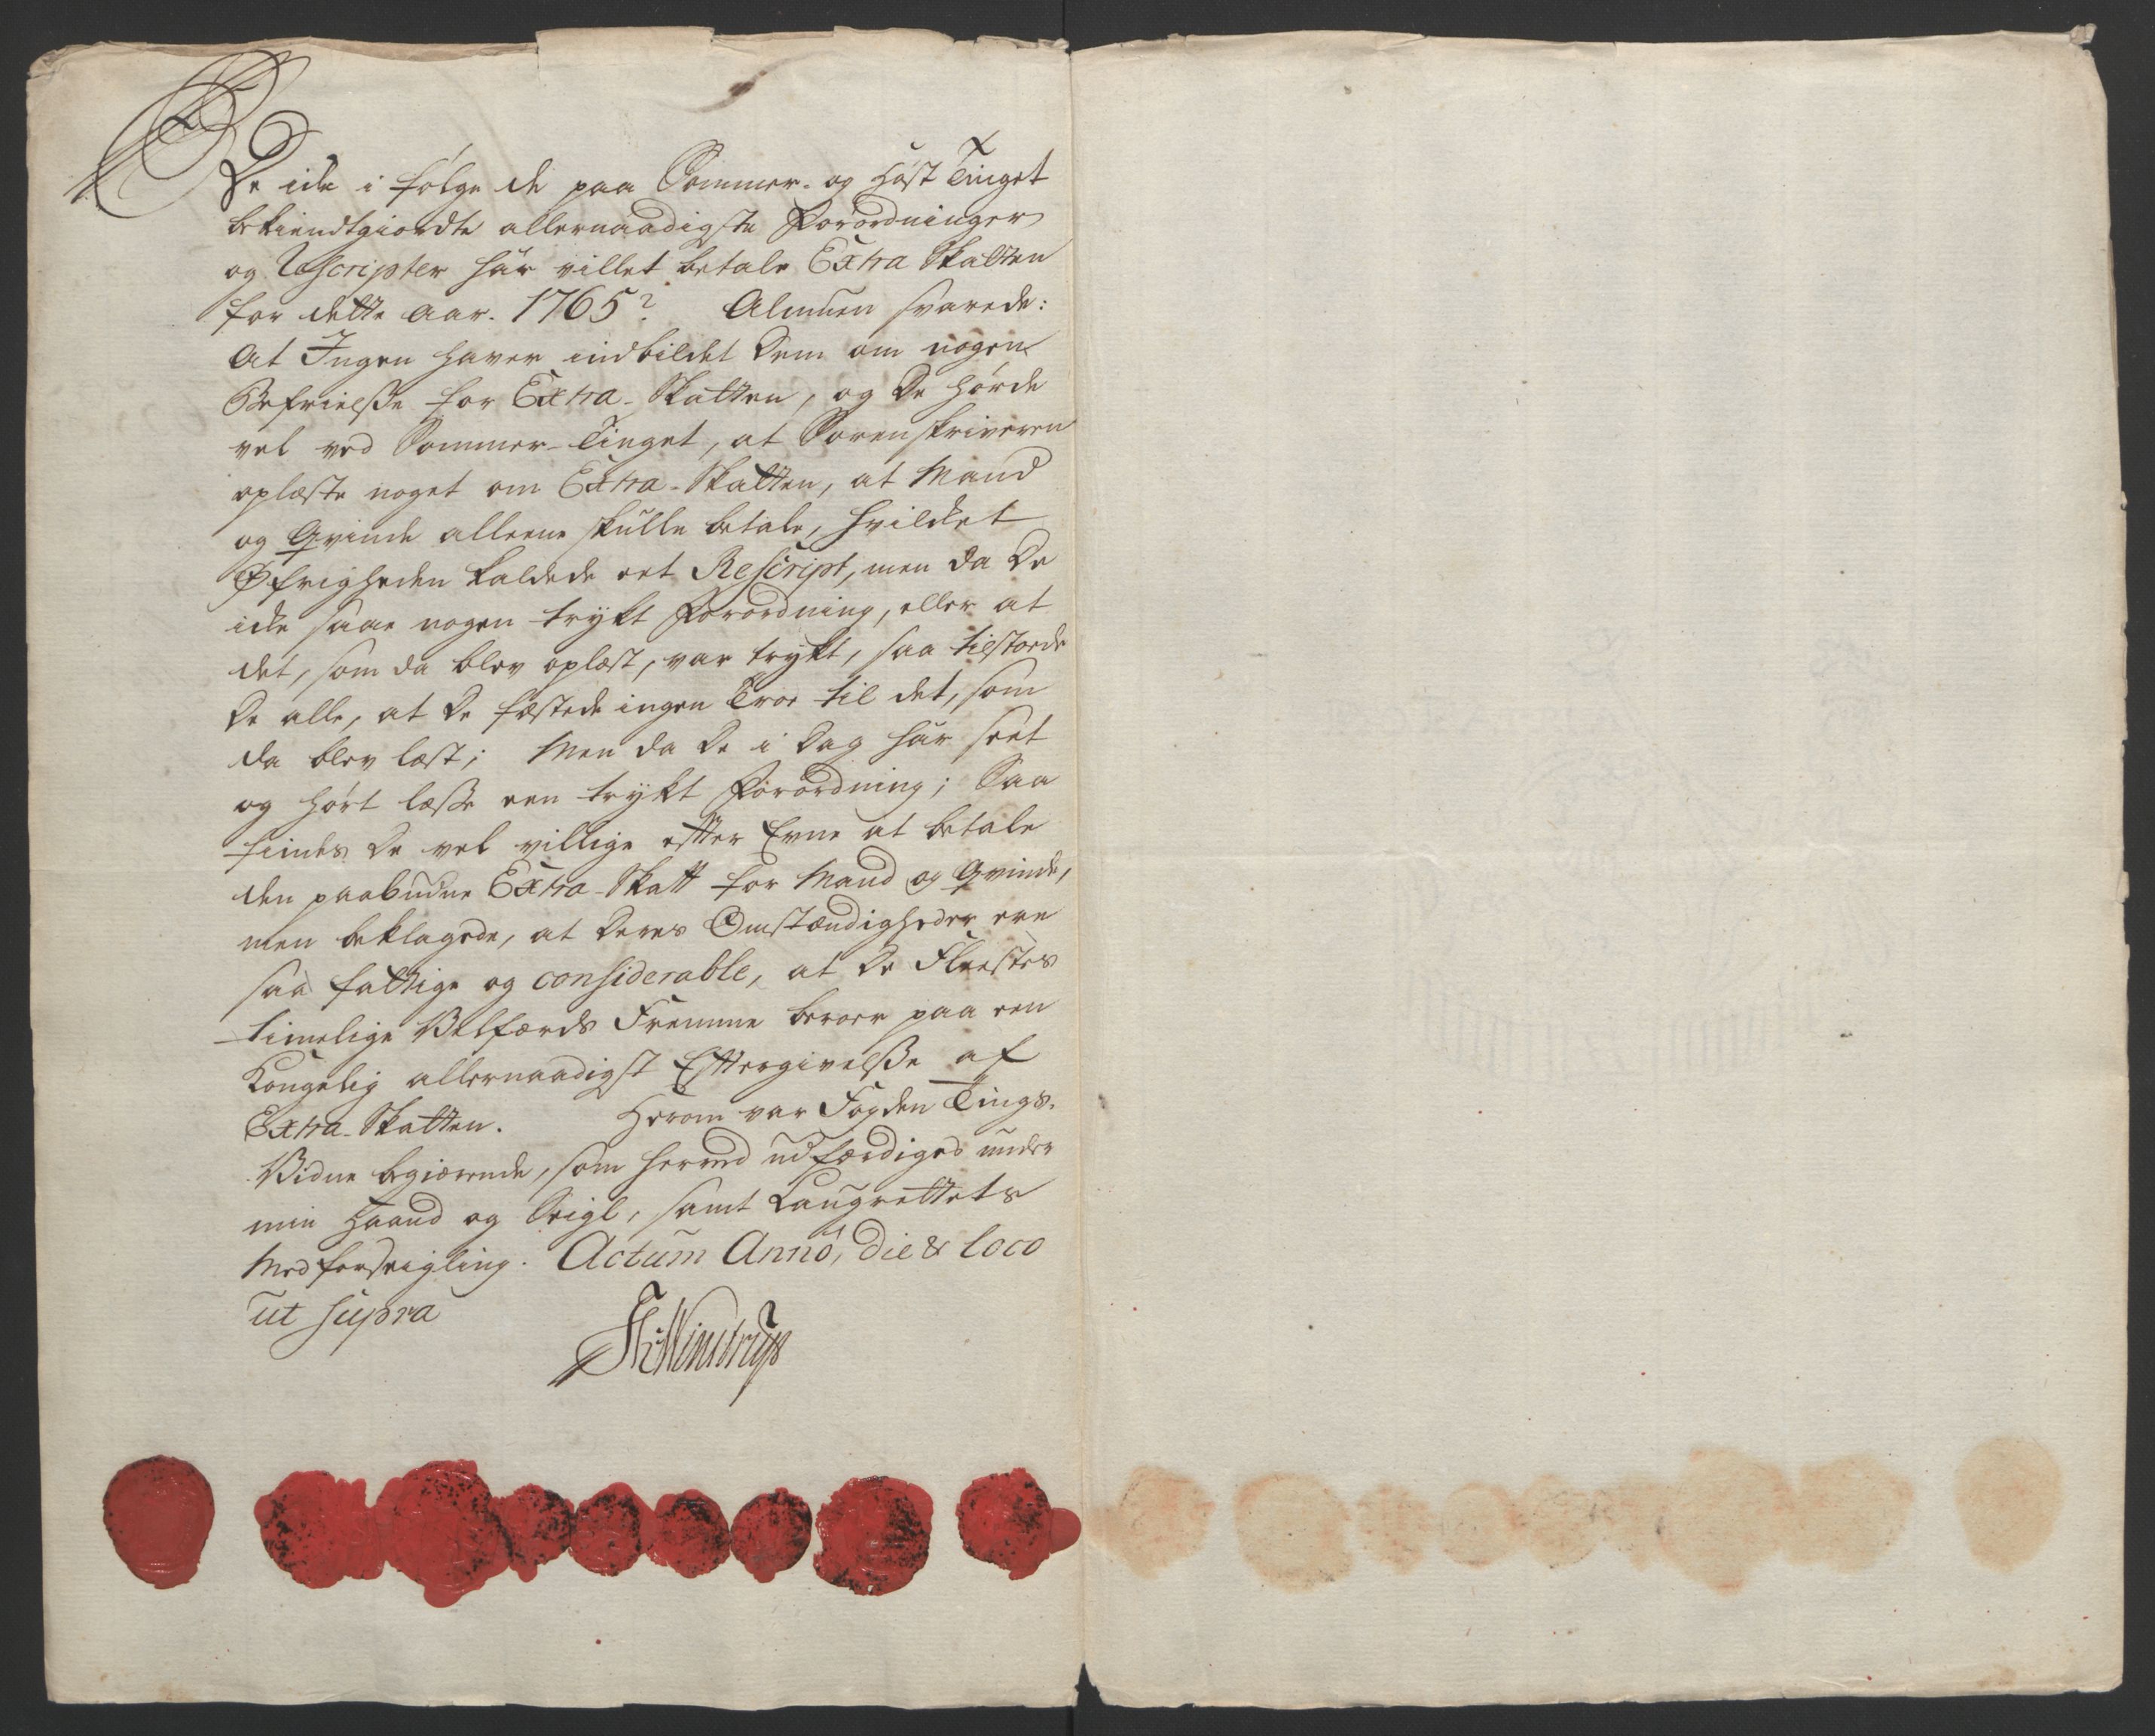 De icke i følge de paa Sommer- og Høst Tinget
bekiendtgiordte allernaadigste Forordninger
og Rescripter har villet betale Extra Skatten
for dette Aar. 1765? Almuen svarede:
At Ingen haver indbildet dem om nogen
Befrielsse for Extra-Skatten, og de hørde
vel ved Sommer-Tinget, at Sorenskriveren
oplæste noget om Extra-Skatten, at Mand
og Qvinde alleene skulle betale, hvilcket
Øfrigheden kaldede eet Rescript, men da de
icke saae nogen trykt Forordning, eller at
det, som da blev oplæst, var trykt, saa tilstoede
de alle, at de fæstede ingen Troe til det, som
da blev læst; Men da de i Dag har seet
og hørt læsse een trykt Forordning; Saa
findes de vel villige efter Evne at betale
den paabudne Extra-Skatt for Mand og Qvinde,
men beklagede, at deres Omstændigheder ere
saa fattige og considerable, at de Fleestes
timelige Velfærds Fremme beroer paa een
Kongelig allernaadigst Eftergivelsse af
Extra-Skatten. Herom var Fogden Tings-
Vidne begiærende, som herved udfærdiges under
min Haand og Seigl, samt Laugrettets
Medforseigling. Actum Anno, die & loco
ut supra